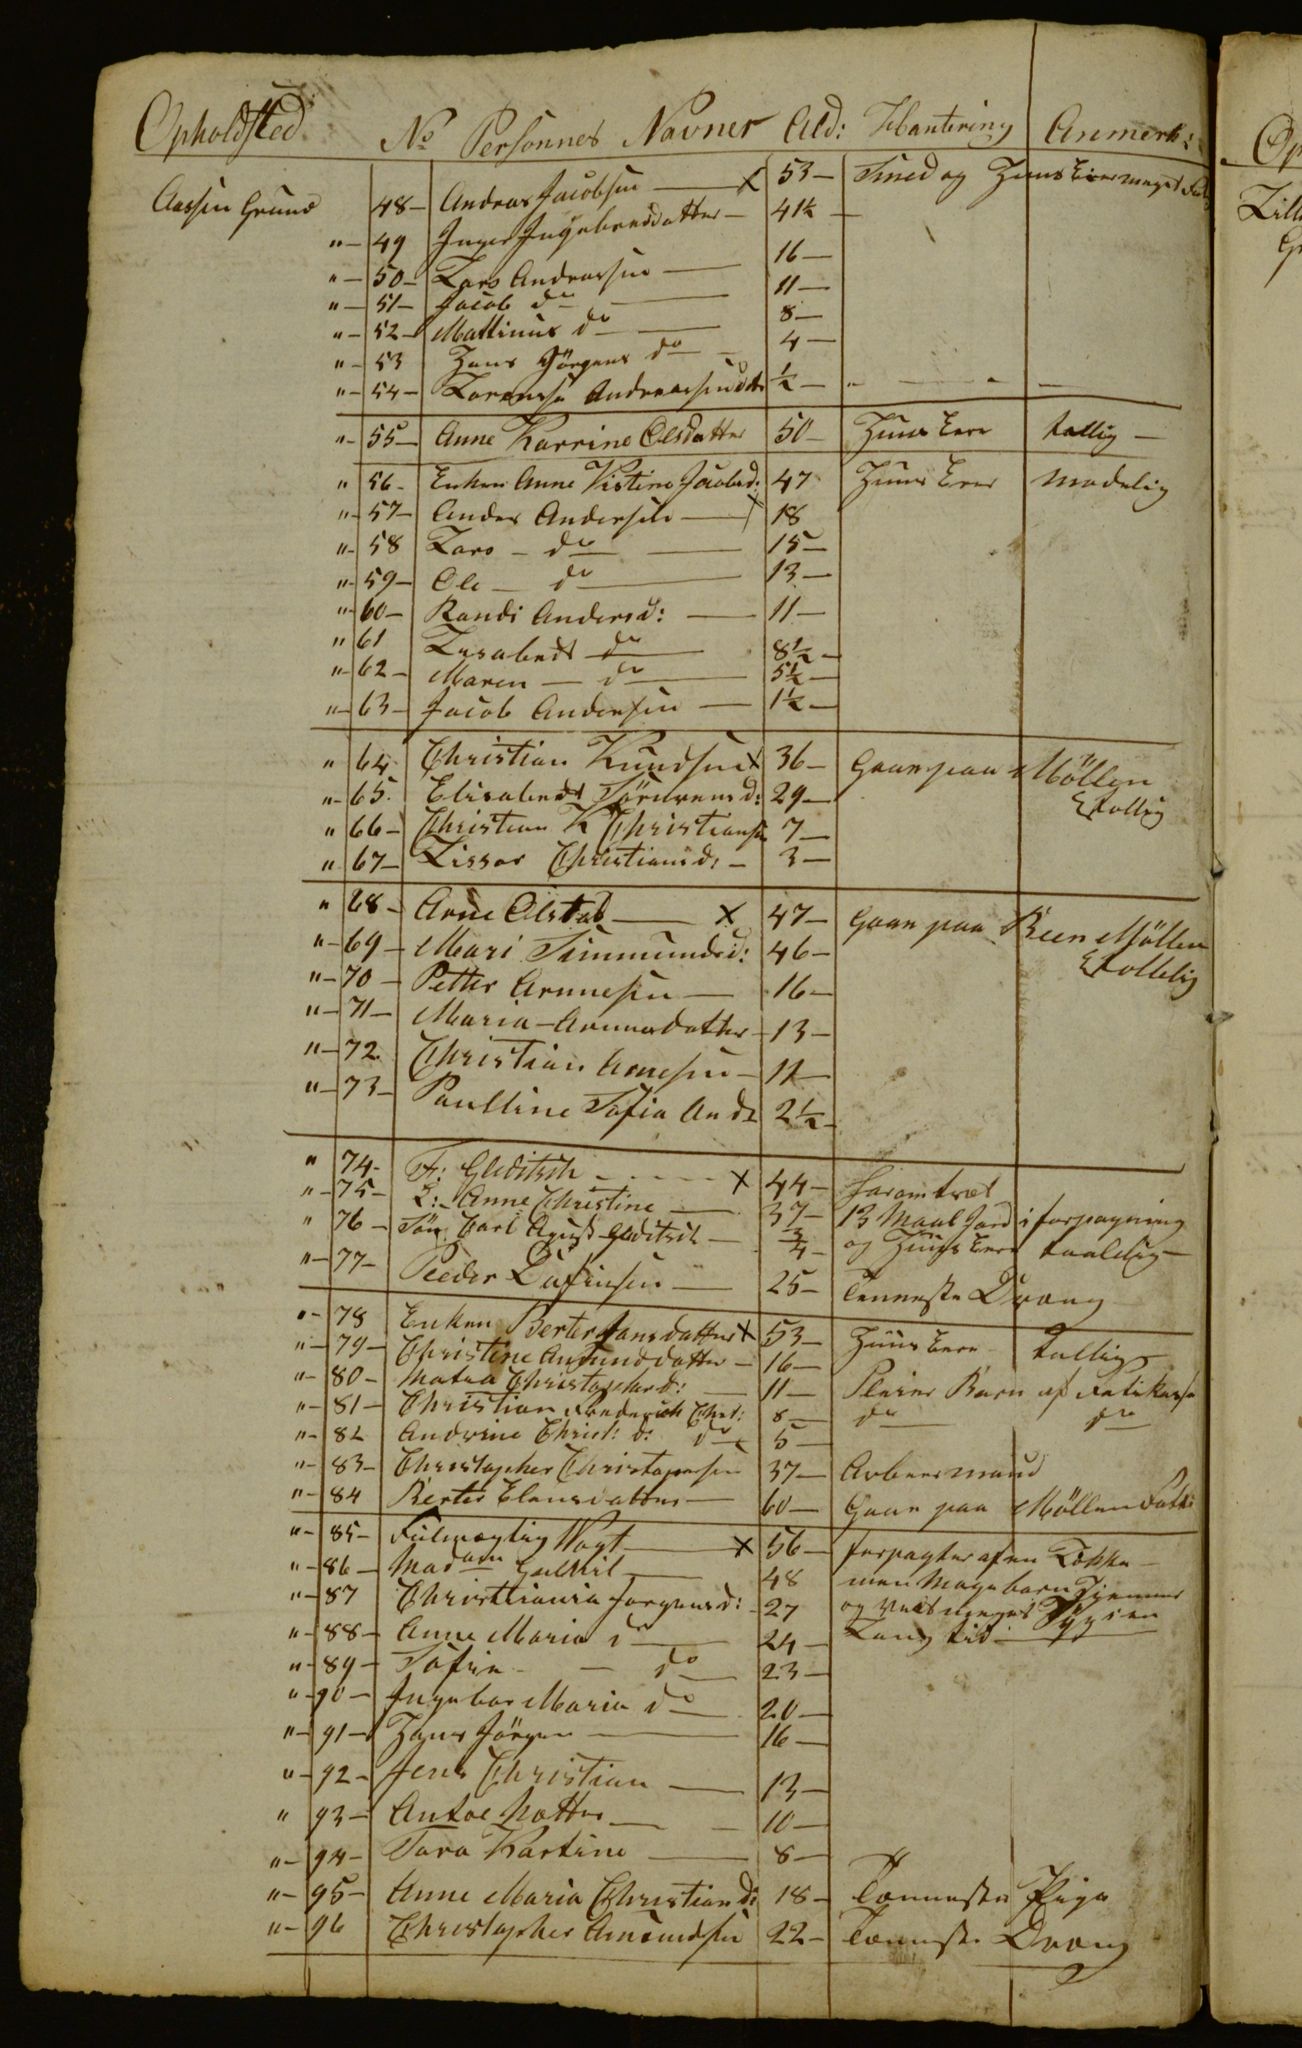 Opholdsted No Personnes Navner Ald: Handtering Anmerk:
Aassen Grund 48 Andreas Jacobsen x 53 Smed og Huus Eier meget
" 49 Inger Ingebretsdatter 41½
" 50 Lars Andreassen 16
" 51 Jacob do 11
" 52 Mattinus do 8
" 53 Hans Jörgens do 4
" 54 Lorense Andreassensdtr ½
" 55 Anne Karrine Olsdatter 50 Huus Eere tallig
" 56 Enken Anne Kistine Jacobsd: 47 Huus Eere madelig
" 57 Anders Andersen x 18
" 58 Lars do 15
" 59 Ole do 13
" 60 Randi Andersd: 11
" 61 Lisabeds do 8½
" 62 Maren do 5½
" 63 Jacob Andersen 1½
" 64 Christian Knudsen x 36 Gaar paa Möllen
" 65 Elisabeds d: 29 tollig
" 66 Christian K Christiansn 7
" 67 Lissar Christiansd: 3
" 68 Arne Olstad x 47 Gaar paa Been Möllen
" 69 Mari Simmundsd: 46 tollelig
" 70 Petter Arnnesen 16
" 71 Maria Arnnesdatter 13
" 72 Christian Arnesen 11
" 73 Paulline Sofia An d: 2½
" 74 Fr: Gleditsch x 44
" 75 K: Anne Christine 37 13 Maal Jord i forpagning
" 76 Sön Carl Agust Gleditsch ¾ og Huus Eere taalelig
" 77 Peeder 25 Tenneste Dreng
" 78 Enken Berter Hansdatter x 53 Huus Eere tallig
" 79 Christine Amunddatter 16
" 80 Matea Christopherd: 11 Pleier Barn af Fatikasse
" 81 Christian Frederich Chrs: 8 do do
" 82 Andrine Christ: d: do 5
" 83 Christopher Christopersen 37 Arbeermand
" 84 Berter Elensdatter 60 Gaar paa Möllen
" 85 Fulmegtig Vogt x 56 forpagter af en Løkke
" 86 Madam 48 men Mage barn Hjemmer
" 87 Christiania Jorgensd: 27 og Sygsen
" 88 Anne Maria do 24 Lang tid
" 89 Sofie do 23
" 90 Ingebor Maria do 20
" 91 Hans Jörgen 16
" 92 Jens Christian 13
" 93 10
" 94 Sara Kartine 8
" 95 Anne Maria Christiand: 18 Tenneste Pige
" 96 Christopher Amundsen 22 Tenneste Dreng